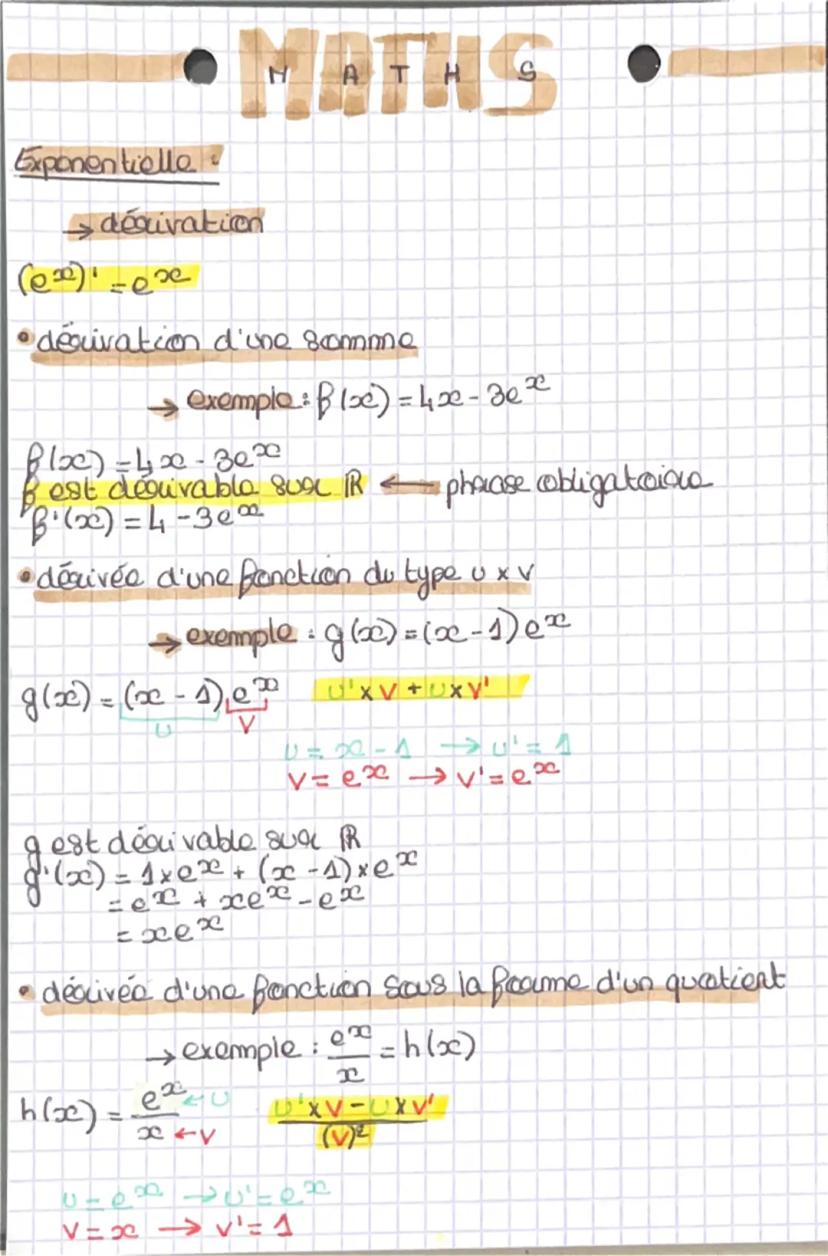 MATHS
Exponentielle :
→ dérivation
(eˣ)' = eˣ
• dérivation d'une somme
→ exemple : f(x) = 4x - 3eˣ
f(x) = 4x - 3eˣ
f est dérivable sur ℝ ← phrase obligatoire
f'(x) = 4 - 3eˣ
• dérivée d'une fonction du type u x v
→ exemple : g(x) = (x - 1)eˣ
g(x) = (x - 1) eˣ u' x v + u x v'
u v
u = x - 1 → u' = 1
v = eˣ → v' = eˣ
g est dérivable sur ℝ
g'(x) = 1 x eˣ + (x - 1) x eˣ
= eˣ + xeˣ - eˣ
= xeˣ
• dérivée d'une fonction sous la forme d'un quotient
→ exemple : eˣ/x = h(x)
h(x) = eˣ ← u / x ← v (u' x v - u x v')/(v)²
u = eˣ → u' = eˣ
v = x → v' = 1